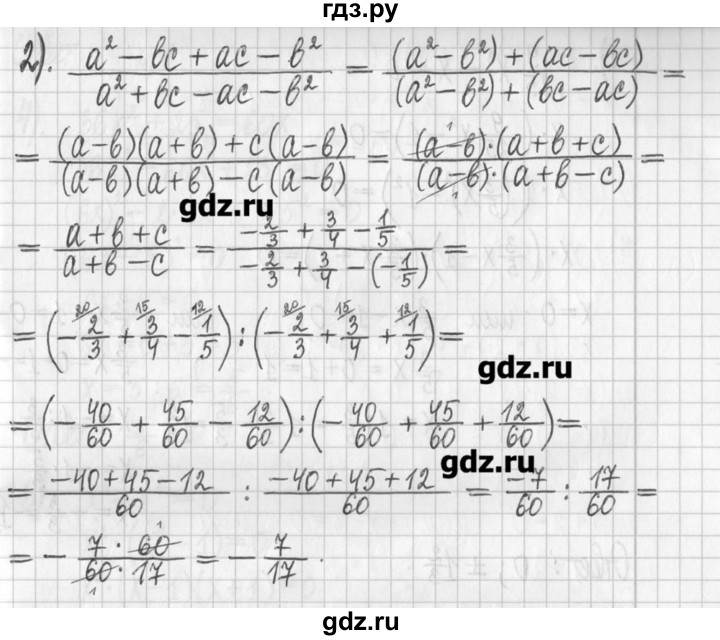 гдз.ру
2). (a² − bc + ac − b²)/(a² + bc − ac − b²) = ((a² − b²) + (ac − bc))/((a² − b²) + (bc − ac)) =
= ((a−b)(a+b) + c(a−b))/((a−b)(a+b) − c(a−b)) = ((a−b)¹·(a+b+c))/((a−b)₁·(a+b−c)) =
gdz.ru
= (a+b+c)/(a+b−c) = (−2/3 + 3/4 − 1/5)/(−2/3 + 3/4 − (−1/5)) =
= (−²⁰⁄2/3 + ¹⁵⁄3/4 − ¹²⁄1/5) : (−²⁰⁄2/3 + ¹⁵⁄3/4 + ¹²⁄1/5) =
gdz.ru
= (−40/60 + 45/60 − 12/60) : (−40/60 + 45/60 + 12/60) =
gdz.ru
= (−40+45−12)/60 : (−40+45+12)/60 = −7/60 : 17/60 =
= − (7 · 60¹)/(60₁ · 17) = − 7/17 .
gdz.ru